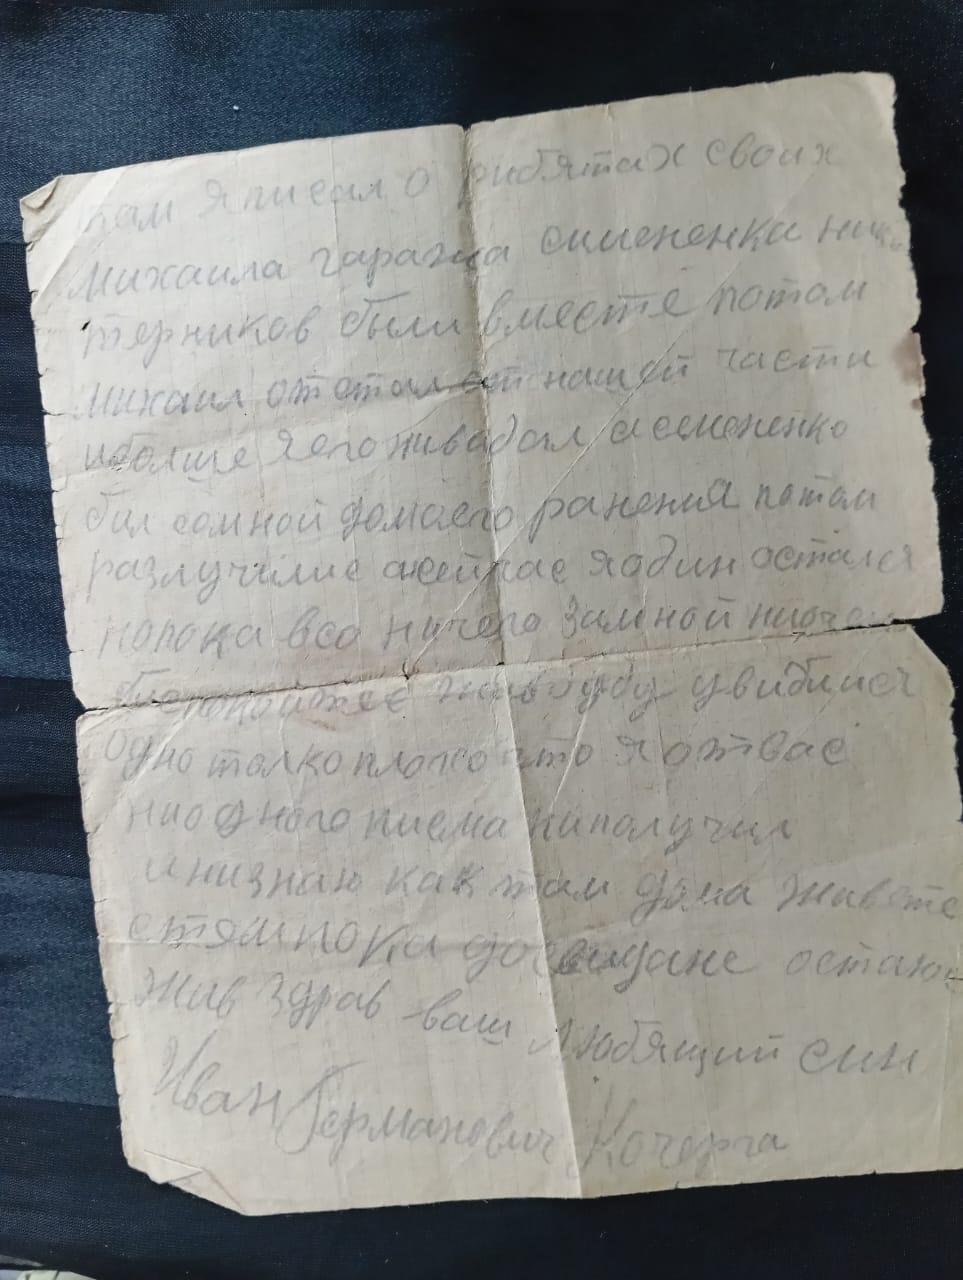 вам я писал о рибятах своих
Михаила гаража симененка
терников были вместе потом
Михаил отстал от нашей части
иболше я его нивадал а семененко
был сомной домоего ранения патом
разлучилис асейчас я один остался
нопока всо ничего Замной
жив буду увидимся
Одно толко плохо што я отвас
ниодного писма ниполучил
инизнаю как там дома живете
стем пока досвидане остаюс
жив здрав -ваш Любящий син
Иван Германович Кочерга